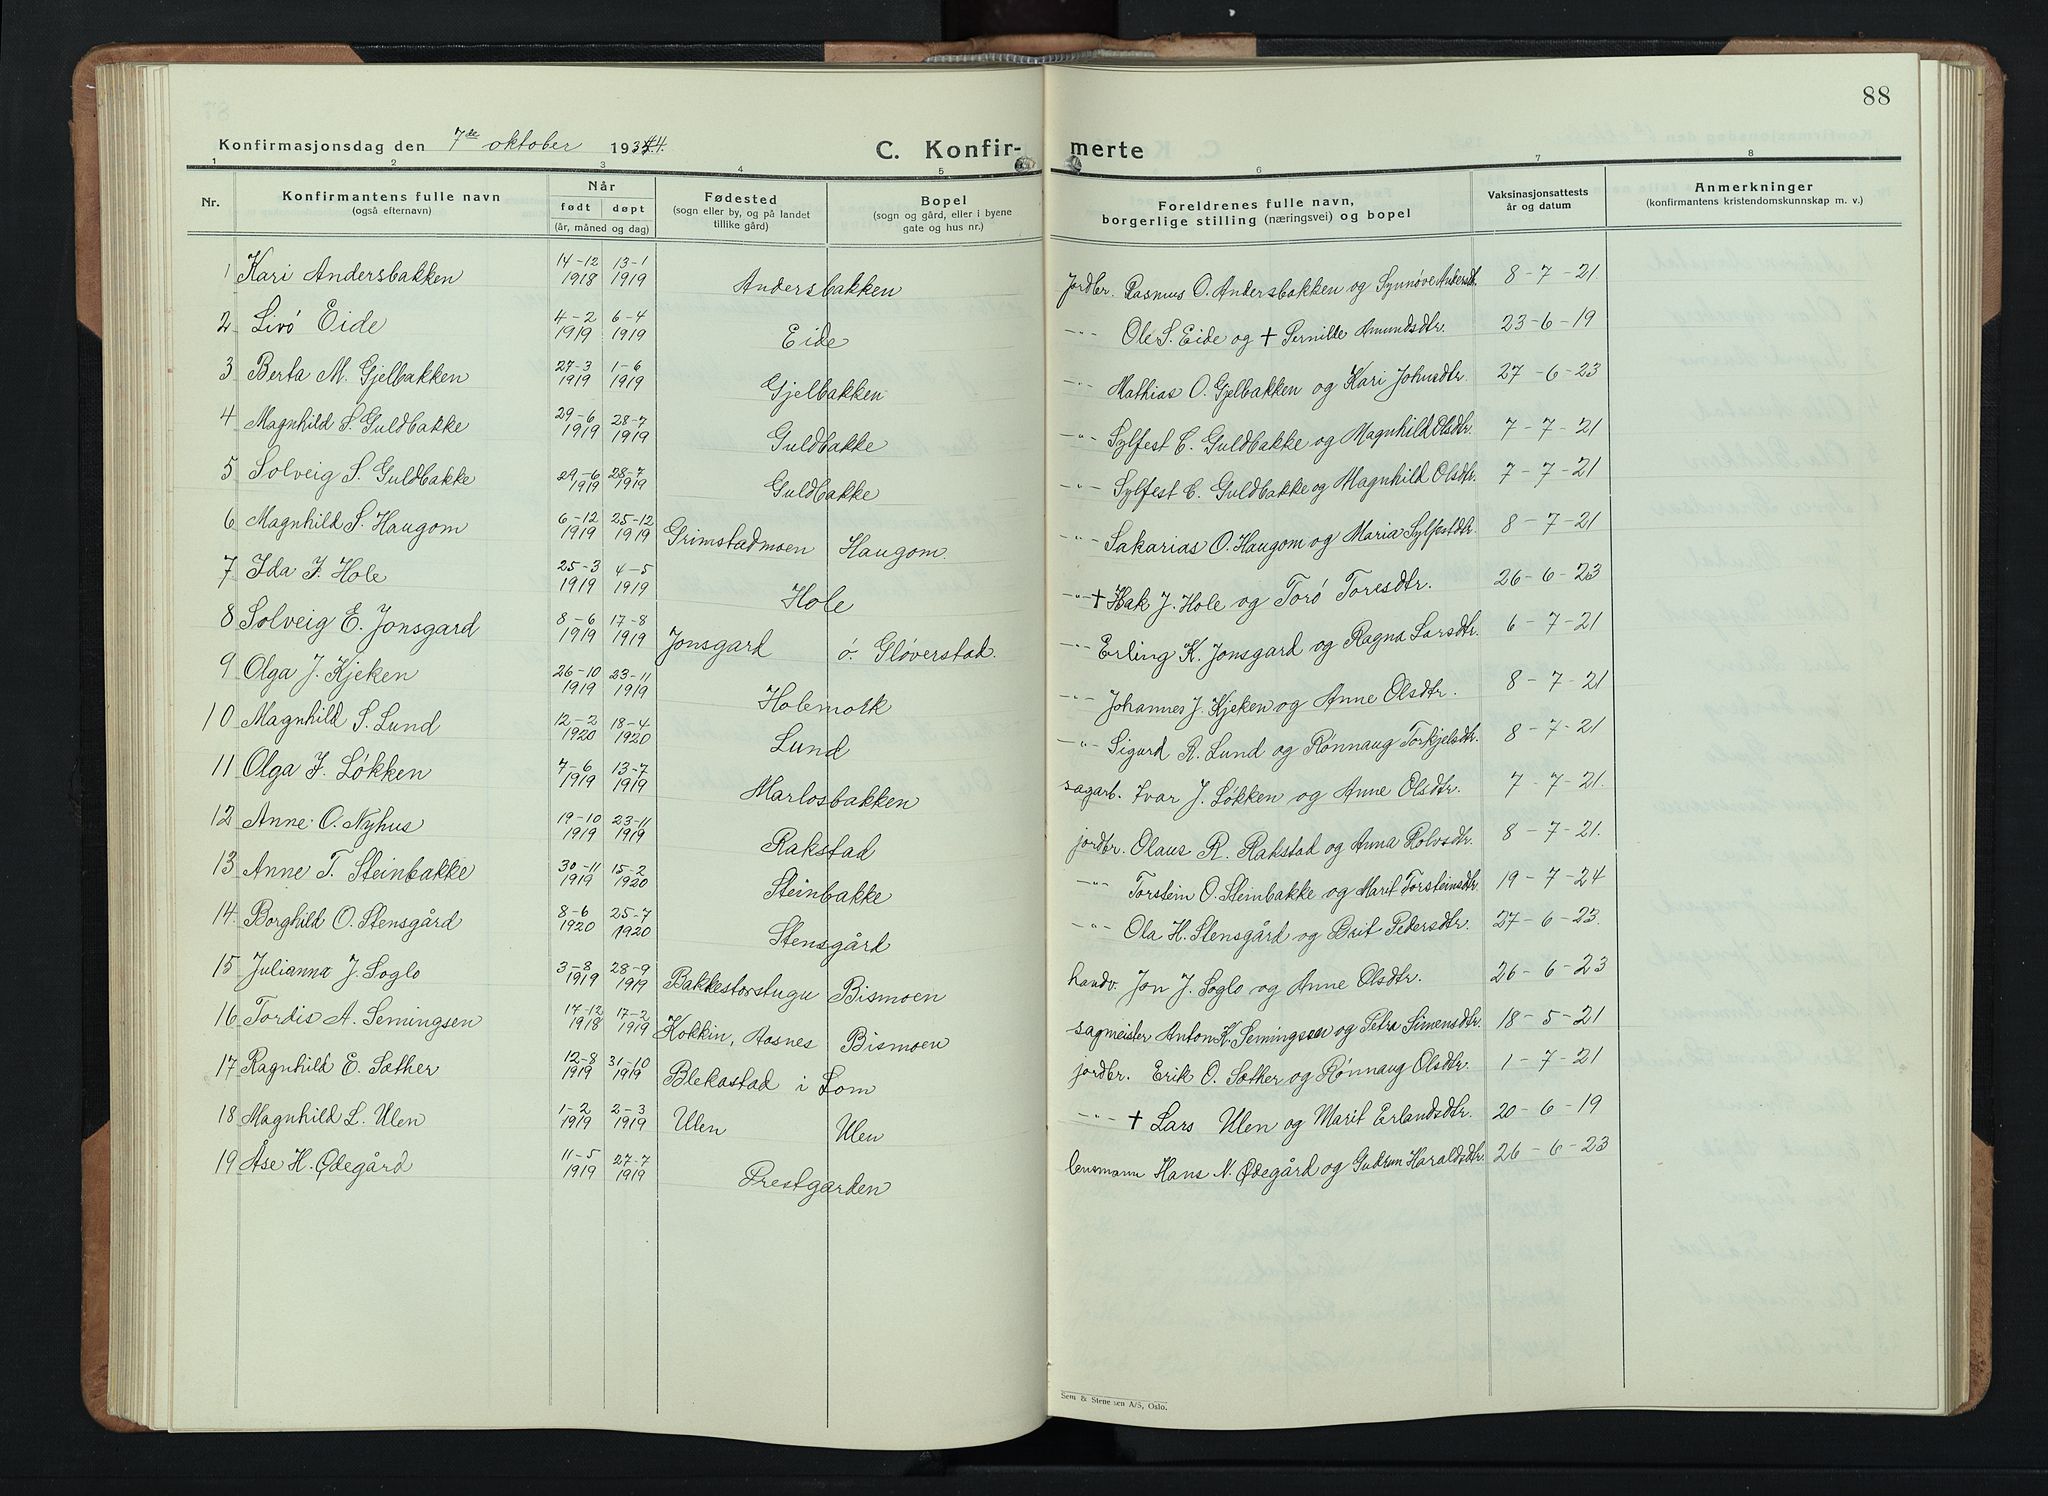 88
Konfirmasjonsdag den 7de oktober 1934
C. Konfir-merte
1 2 3 4 5 6 7 8
Nr. Konfirmantens fulle navn (også efternavn) Når født døpt (år, måned og dag) Fødested (sogn eller by, og på landet tillike gård) Bopel (sogn og gård, eller i byene gate og hus nr.) Foreldrenes fulle navn, borgerlige stilling (næringsvei) og bopel Vaksinasjonsattests år og datum Anmerkninger (konfirmantens kristendomskunnskap m. v.)
1 Kari Andersbakken 14-12 1918 13-1 1919 Andersbakken Jordbr. Rasmus O. Andersbakken og Synnøve Andersdt. 8-7-21.
2 Livø Eide 4-2 1919 6-4 1919 Eide -"- Ole S. Eide og + Pernille Amundsdtr. 23-6-19
3 Berta M. Gjelbakken 27-3 1919 1-6 1919 Gjelbakken -"- Mathias O. Gjelbakken og Kari Johnsdtr. 27-6-23
4 Magnhild S. Guldbakke 29-6 1919 28-7 1919 Guldbakke -"- Sylfest C. Guldbakke og Magnhild Olsdtr. 7-7-21
5 Solveig S. Guldbakke 29-6 1919 28-7 1919 Guldbakke -"- Sylfest C. Guldbakke og Magnhild Olsdtr. 7-7-21
6 Magnhild S. Haugom 6-12 1919 25-12 1919 Grimstadmoen Haugom. -"- Sakarias O. Haugom og Maria Sylfestdtr. 8-7-21
7 Ida I. Hole 25-3 1919 4-5 1919 Hole -"- + Isak J. Hole og Torø Toresdtr. 26-6-23
8 Solveig E. Jonsgard 8-6 1919 17-8 1919 Jonsgard ø. Gløverstad. -"- Erling K. Jonsgard og Ragna Larsdtr. 6-7-21
9 Olga J. Kjeken 26-10 1919 23-11 1919 Holemork -"- Johannes J. Kjeken og Anne Olsdtr. 8-7-21
10 Magnhild S. Lund 12-2 1920 18-4 1920 Lund -"- Sigurd R. Lund og Rønnaug Torkjelsdtr. 8-7-21
11 Olga I. Løkken 7-6 1919 13-7 1919 Marlosbakken sagarb. Ivar J. Løkken og Anne Olsdtr. 7-7-21
12 Anne O. Nyhus 19-10 1919 23-11 1919 Rakstad jordbr. Olaus R. Rakstad og Anna Rolvsdtr. 8-7-21.
13 Anne T. Steinbakke 30-11 1919 15-2 1920 Steinbakke -"- Torstein O. Steinbakke og Marit Torsteinsdtr. 19-7-24
14. Borghild O. Stensgård 8-6 1920 25-7 1920 Stensgård -"- Ola H. Stensgård og Brit Pedersdtr. 27-6-23.
15 Julianna J. Soglo 3-8 1919 28-9 1919 Bakkestorstugu Bismoen handv. Jon J. Soglo og Anne Olsdtr. 26-6-23
16 Tordis A. Semingsen 17-12 1918 17-2 1919 Kokkin, Aasnes Bismoen sagmeister Anton K. Semingsen og Petra Simensdtr. 18-5-21
17 Ragnhild E. Sæther 12-8 1919 31-10 1919 Blekastad i Lom jordbr. Erik O. Sæther og Rønnaug Olsdtr. 1-7-21
18 Magnhild L. Ulen 1-2 1919 2-3 1919 Ulen Ulen -"- + Lars Ulen og Marit Erlandsdtr. 20-6-19
19 Åse H. Ødegård 11-5 1919 27-7 1919 Prestgarden lensmann Hans N. Ødegård og Gudrun Haraldsdtr. 26-6-23
Sem & Stenersen A/S, Oslo.